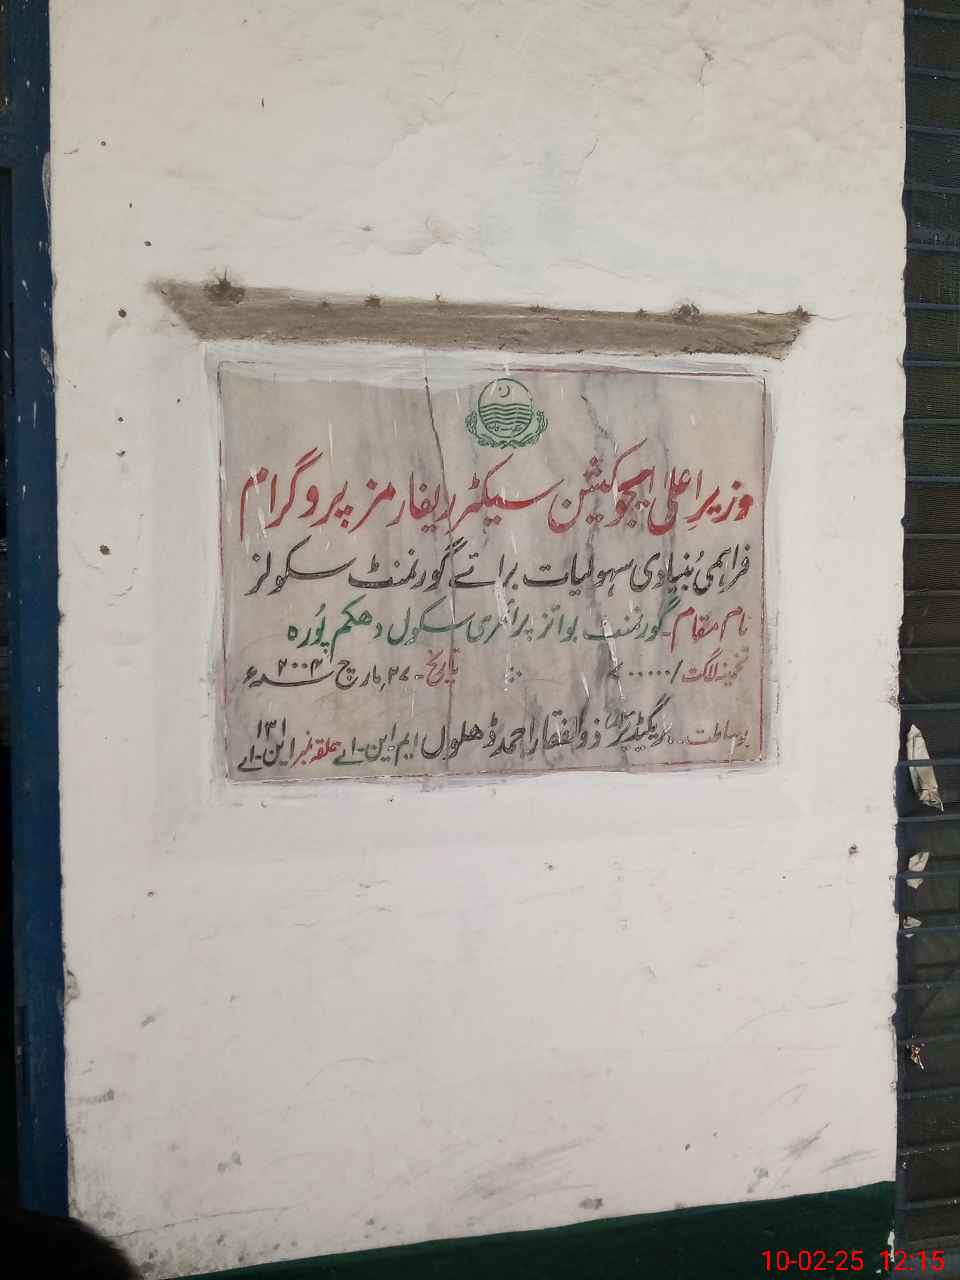 وزیراعلیٰ ایجوکیشن سیکٹر ریفارمز پروگرام
فراہمی بُنیادی سہولیات برائے گورنمنٹ سکولز
نام مقام۔ گورنمنٹ بوائز پرائمری سکول دھکم پُورہ
تخمینہ لاگت / ۷۰۰۰۰۰ تاریخ۔ ۲۷ مارچ ۲۰۰۴ء
بوساطت۔۔ بریگیڈیر ذوالفقار احمد ڈھلوں ایم۔این۔اے حلقہ نمبر این۔اے ۱۳۱
10-02-25 12:15